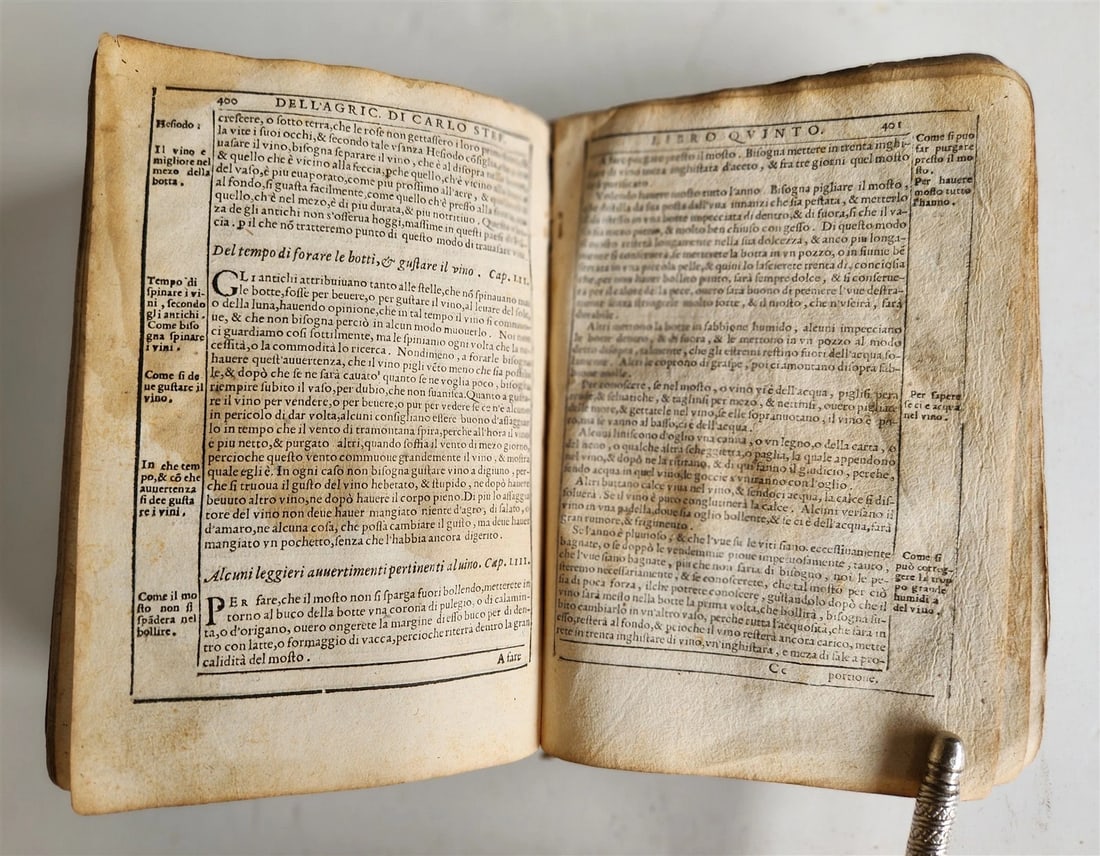 400 DELL'AGRIC. DI CARLO STEF.
Hesiodo:
Il vino è
migliore nel
mezo della
botta.
Tempo di
spinare i vi-
ni, secondo
gli antichi.
Come biso
gna spinare
i vini.
Come si de
ue gustare il
vino.
In che tem
po, & cō che
auuertenza
si dee gusta
re i vini.
Come il mo
sto non si
spāderà nel
bollire.
crescere, o sotto terra, che le rose non gettassero i loro
la vite i suoi occhi, & secondo tale vsanza Hesiodo cōsiglia
uasare il vino, bisogna separare il vino, che è al disopra
& quello che è vicino alla feccia, pche quello, ch'è vicino
del vaso, è piu euaporato, come piu prossimo all'aere, &
al fondo, si guasta facilmente, come quello ch'è presso alla
quello, ch'è nel mezo, è di piu durata, & piu notritiuo.
za de gli antichi non s'osserua hoggi, massime in questi
cia. p il che nō tratteremo punto di questo modo di trauasare
Del tempo di forare le botti, & gustare il vino. Cap. LII.
GLi antichi attribuiuano tanto alle stelle, che nō spinauano
le botte, fosse per beuere, o per gustare il vino, al leuare del sole,
o della luna, hauendo opinione, che in tal tempo il vino si
ue, & che non bisogna perciò in alcun modo muouerlo. Noi
ci guardiamo così sottilmente, ma le spiniamo ogni volta che la
cessità, o la commodità lo ricerca. Nondimeno, a forarle bisogna
hauere quest'auuertenza, che il vino pigli vēto meno che sia
le, & dopò che se ne sarà cauato quanto se ne voglia poco, bisogna
riempire subito il vaso, per dubio, che non suanisca. Quanto a
re il vino per vendere, o per beuere, o pur per vedere se ce n'è alcuno
in pericolo di dar volta, alcuni consigliano essere buono d'assaggiar
lo in tempo che il vento di tramontana spira, perche all'hora il vino
è piu netto, & purgato altri, quando soffia il vento di mezo giorno,
percioche questo vento commuoue grandemente il vino, & mostra
quale egli è. In ogni caso non bisogna gustare vino a digiuno, per-
che si truoua il gusto del vino hebetato, & stupido, ne dopò hauere
beuuto altro vino, ne dopò hauere il corpo pieno. Di piu lo assaggia
tore del vino non deue hauer mangiato niente d'agro, di salato, o
d'amaro, ne alcuna cosa, che possa cambiare il gusto, ma deue hauer
mangiato vn pochetto, senza che l'habbia ancora digerito.
Alcuni leggieri auuertimenti pertinenti al vino. Cap. LIII.
PER fare, che il mosto non si sparga fuori bollendo, metterete in
torno al buco della botte vna corona di pulegio, o di calamin-
ta, o d'origano, ouero ongerete la margine di esso buco per di den-
tro con latte, o formaggio di vacca, percioche riterrà dentro la gran
calidità del mosto.
A fare
LIBRO QVINTO. 401
A fare purgare presto il mosto. Bisogna mettere in trenta inghi-
di vino meza inghistara d'aceto, & fra tre giorni quel mosto
purificato.
mosto tutto l'anno. Bisogna pigliare il mosto,
della sua posta dall'vua innanzi che sia pestata, & metterlo
in vna botte impecciata di dentro, & di fuora, sì che il va-
pieno, & molto ben chiuso con gesso. Di questo modo
il mosto resterà longamente nella sua dolcezza, & anco piu longa-
mente si conseruerà se metterete la botta in vn pozzo, o in fiume bē
serrata in vna piccola pelle, & quini lo lascierete trenta dì, conciosia
che per non hauer bollito punto, sarà sempre dolce, & si conserue-
rà ouero sarà buono di premere l'vue
molto forte, & il mosto, che n'vscirà, sarà
durabile.
Altri mettono la botte in sabbione humido, alcuni impecciano
le botte dentro, & di fuora, & le mettono in vn pozzo al modo
detto disopra, talmente, che gli estremi restino fuori dell'acqua so-
lamente. Altri le coprono di graspe, poi ci amontano disopra sab-
bione molle.
Per conoscere, se nel mosto, o vino vi è dell'acqua, piglisi pera
crude, & seluatiche, & taglinsi per mezo, & nettinsi, ouero pigliate
delle more, & gettatele nel vino, se elle sopranuotano, il vino è pu-
ro, ma se vanno al basso, ci è dell'acqua.
Alcuni liniscono d'oglio vna canna, o vn legno, o della carta, o
del fieno, o qualche altra scheggietta, o paglia, la quale appendono
nel vino, & dopò ne la ritirano, & di qui fanno il giudicio, perche,
sendo acqua in quel vino, le goccie s'vniranno con l'oglio.
Altri buttano calce viua nel vino, & sendoci acqua, la calce si dis-
soluerà. Se il vino è puro conglutinerà la calce. Alcuni versano il
vino in vna padella, doue sia oglio bollente, & se ci è dell'acqua, farà
gran rumore, & frigimento.
Se l'anno è pluuioso, & che l'vue su le viti siano eccessiuamente
bagnate, o se doppò le vendemmie pioue impetuosamente, tanto,
che l'vue siano bagnate, piu che non faria di bisogno, noi le pe-
steremo necessariamente, & se conoscerete, che tal mosto per ciò
sia di poca forza, ilche potrete conoscere, gustandolo dopò che il
vino sarà messo nella botte la prima volta, che bollirà, bisogna su-
bito cambiarlo in vn'altro vaso, perche tutta l'acquosità, che sarà in
esso, resterà al fondo, & pcioche il vino resterà ancora carico, mette
rete in trenta inghistare di vino, vn'inghistara, e meza di sale a pro-
Cc portione,
Come si può
far purgare
presto il mo
sto.
Per hauere
mosto tutto
l'hanno.
Per sapere
se ci è acqua
nel vino.
Come si
può correg-
gere la trop
po grande
humidità
del vino.